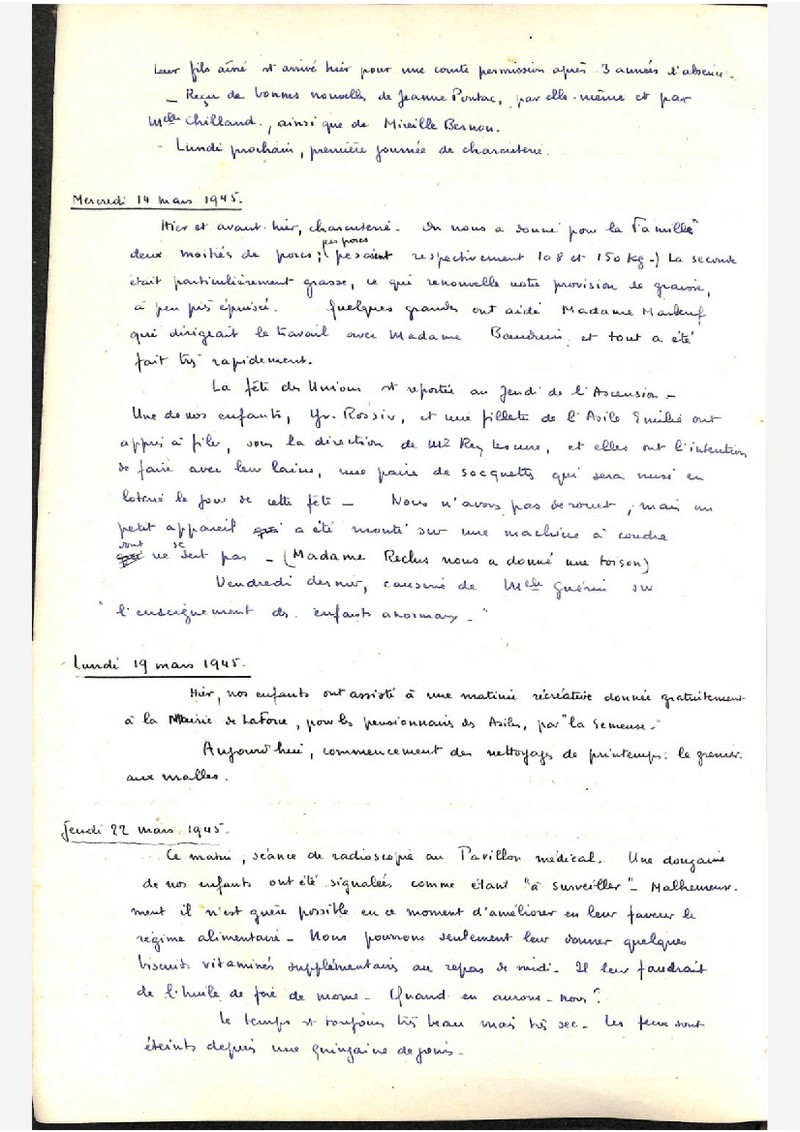 Leur fils aîné est arrivé hier pour une courte permission après 3 années d'absence.
- Reçu de bonnes nouvelles de Jeanne Pontac, par elle-même et par
Melle Chilland, ainsi que de Mireille Bernon.
- Lundi prochain, première journée de charcuterie.
Mercredi 14 mars 1945.
Hier et avant-hier, charcuterie. On nous a donné pour la "Famille"
deux moitiés de porcs; (ces porcs pesaient respectivement 108 et 150 kg.) La seconde
était particulièrement grasse, ce qui renouvelle notre provision de graisse,
à peu près épuisée. Quelques grandes ont aidé Madame Markeuf
qui dirigeait le travail avec Madame Baudouin, et tout a été
fait très rapidement.
La fête des Unions est reportée au Jeudi de l'Ascension -
Une de nos enfants, Yv. Rossiv, et une fillette de l'Asile Emilie ont
appris à filer, sous la direction de Me Rey Lescure, et elles ont l'intention
de faire avec leur laine, une paire de socquettes qui sera mise en
loterie le jour de cette fête - Nous n'avons pas de rouet, mais un
petit appareil a été monté sur une machine à coudre
dont on ne se sert pas - (Madame Reclus nous a donné une toison)
Vendredi dernier, causerie de Melle Guérin sur
"l'enseignement des enfants anormaux."
Lundi 19 mars 1945.
Hier, nos enfants ont assisté à une matinée récréative donnée gratuitement
à la Mairie de Laforce, pour les pensionnaires des Asiles, par "la Semeuse."
Aujourd'hui, commencement des nettoyages de printemps: le grenier
aux malles.
Jeudi 22 mars 1945.
Ce matin, séance de radioscopie au Pavillon médical. Une douzaine
de nos enfants ont été signalées comme étant "à surveiller" - Malheureuse-
ment il n'est guère possible en ce moment d'améliorer en leur faveur le
régime alimentaire - Nous pourrons seulement leur donner quelques
biscuits vitaminés supplémentaires au repas de midi. Il leur faudrait
de l'huile de foie de morue - Quand en aurons-nous?
Le temps est toujours très beau mais très sec - les feux sont
éteints depuis une quinzaine de jours.